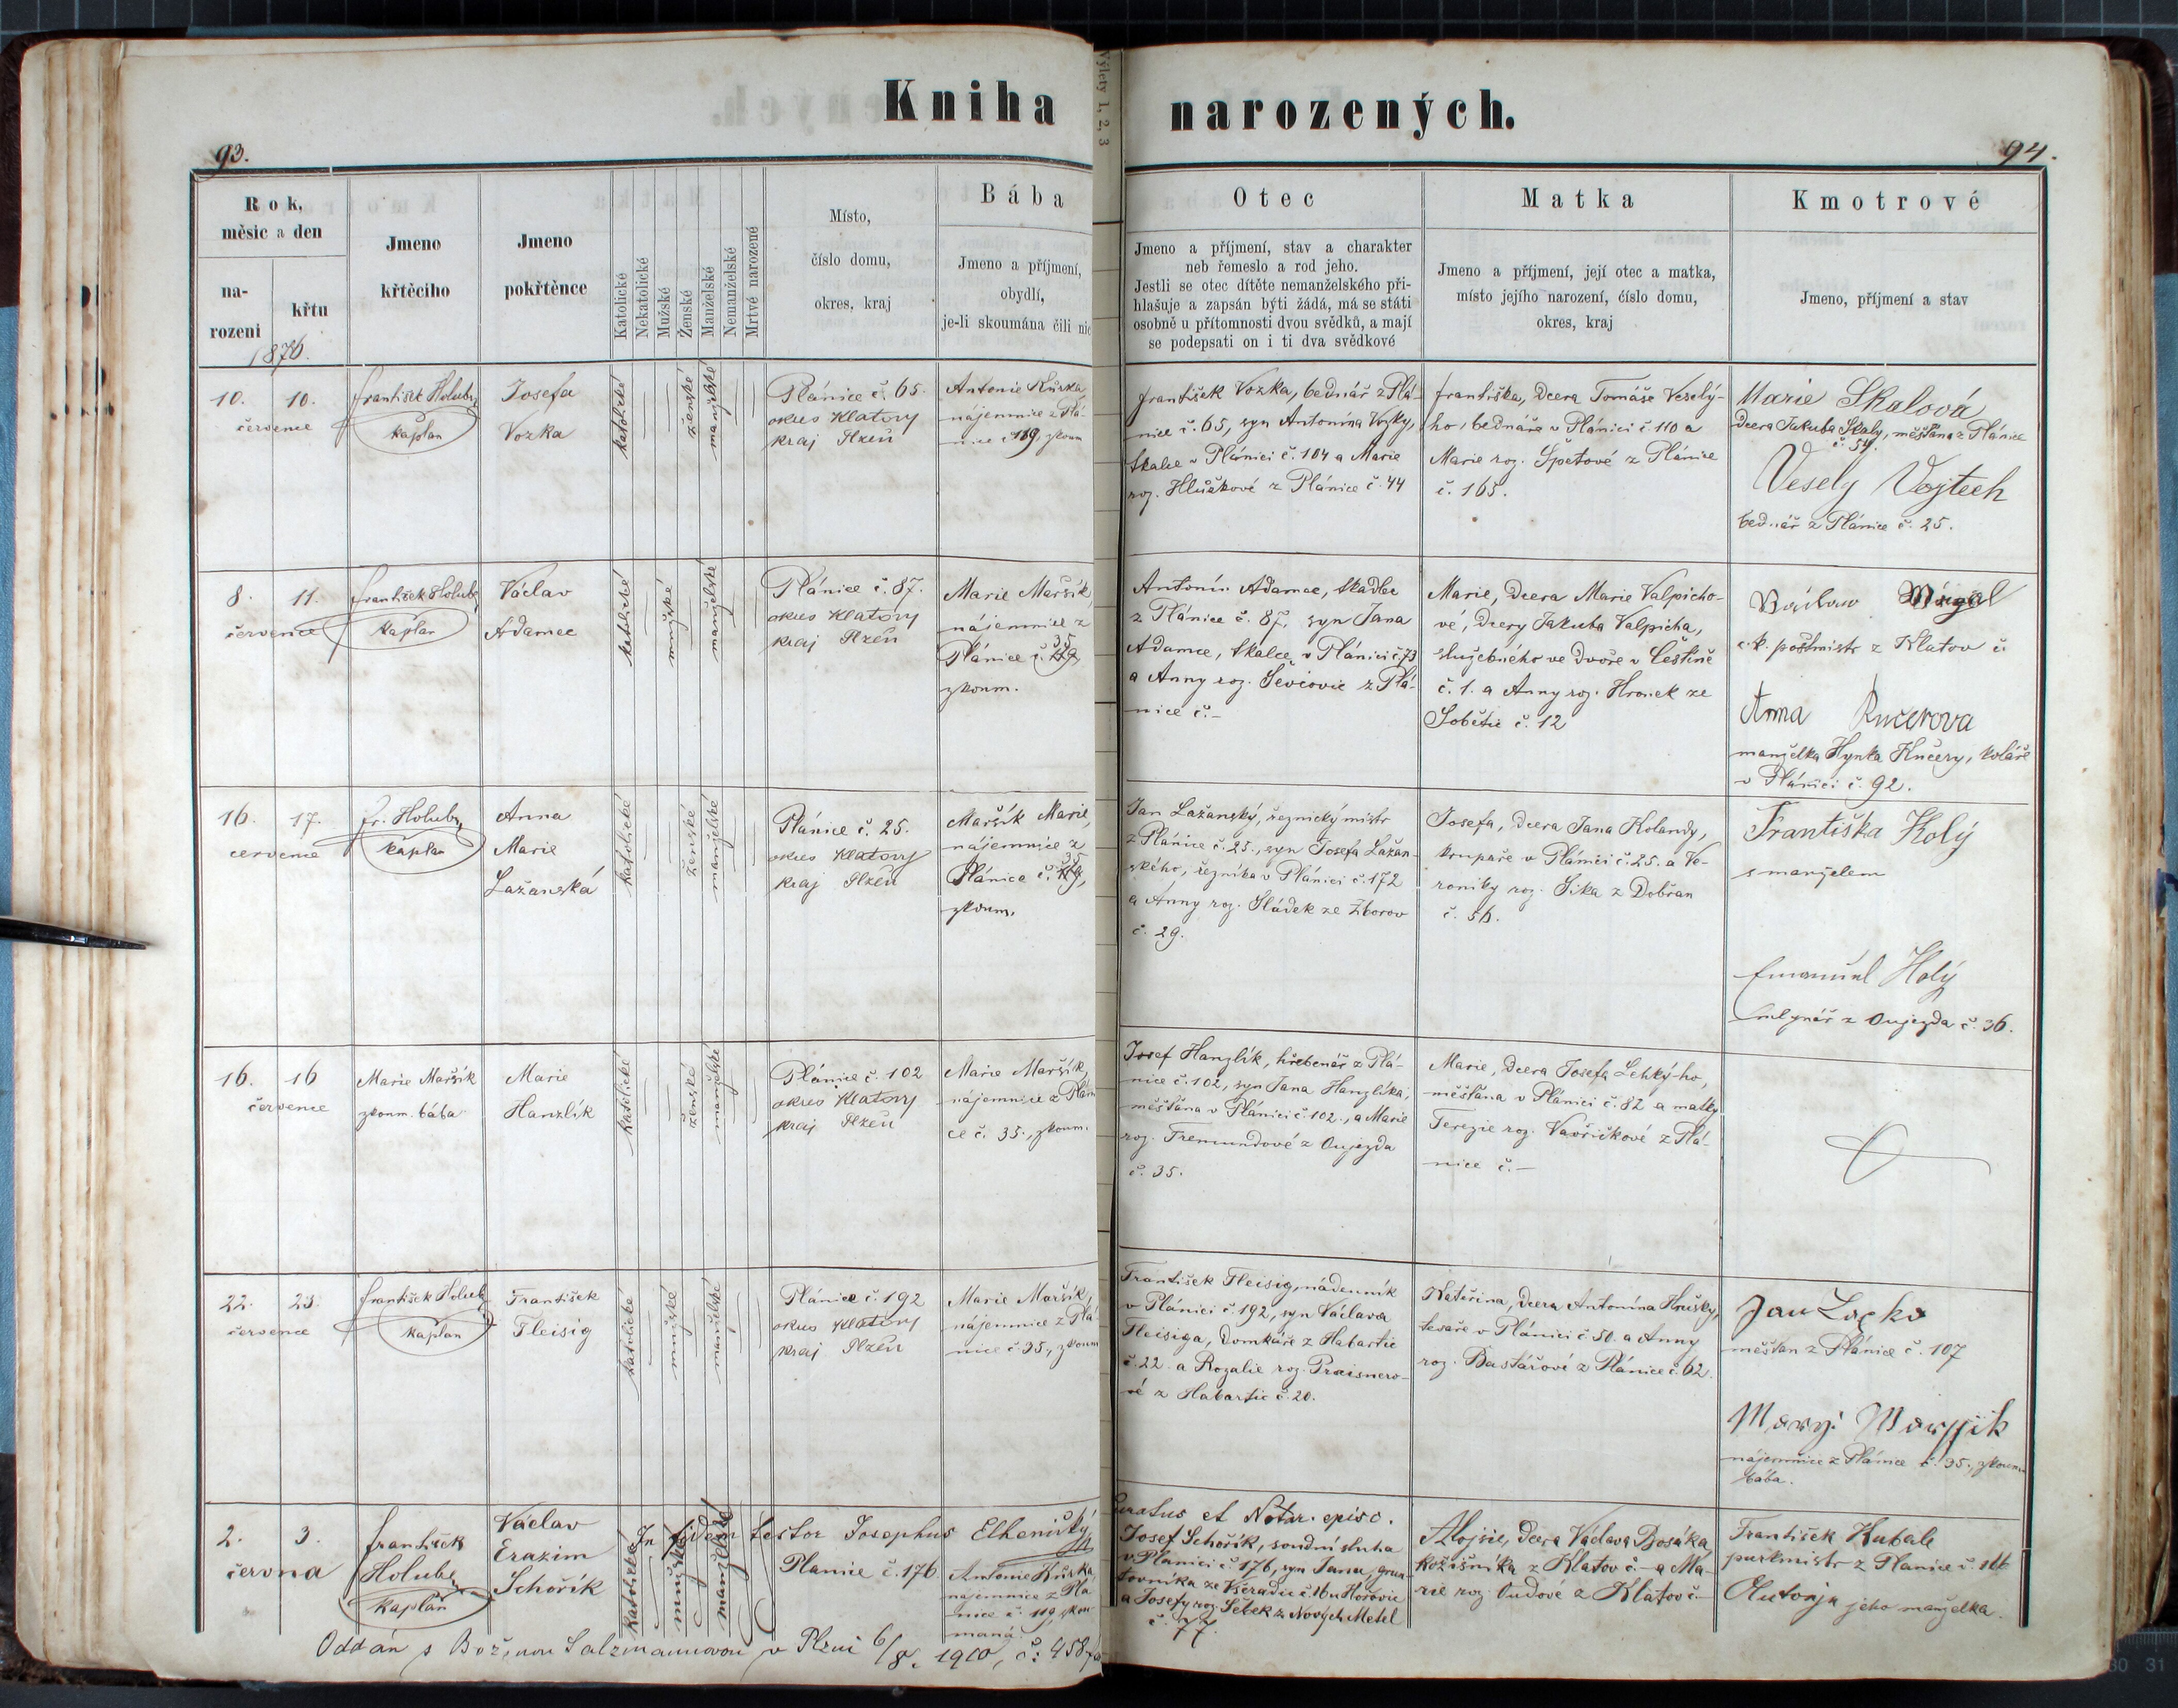 Kniha narozených.
93.
94.
Výlety 1, 2, 3
Rok,
měsic a den
na-
rozeni
křtu
1876.
Jmeno
křtěciho
Jmeno
pokřtěnce
Katolické
Nekatolické
Mužské
Ženské
Manželské
Nemanželské
Mrtvé narozené
Místo,
číslo domu,
okres, kraj
Bába
Jmeno a příjmení,
obydlí,
je-li skoumána čili nic
Otec
Jmeno a příjmení, stav a charakter
neb řemeslo a rod jeho.
Jestli se otec dítěte nemanželského při-
hlašuje a zapsán býti žádá, má se státi
osobně u přítomnosti dvou svědků, a mají
se podepsati on i ti dva svědkové
Matka
Jmeno a příjmení, její otec a matka,
místo jejího narození, číslo domu,
okres, kraj
Kmotrové
Jmeno, příjmení a stav
10. 10.
července
František Holub
kaplan
Josefa
Vozka
katolické
ženské
manželské
Plánice č. 65.
okres Klatovy
kraj Plzeň
Antonie Kůrka
nájemnice z Plá-
nice č. 119, zkoum
František Vozka, bednář z Plá-
nice č. 65, syn Antonína Vozky,
tkalce v Plánici č. 104 a Marie
roz. Hluškové z Plánice č. 44
Františka, dcera Tomáše Veselý-
ho, bednáře v Plánici č. 110 a
Marie roz. Špetové z Plánice
č. 165.
Marie Skalová
dcera Jakuba Skaly, měšťana z Plánice
č. 54.
Vesely Vojtech
bednář z Plánice č. 25.
8. 11.
července
František Holub
kaplan
Václav
Adamec
katolické
mužské
manželské
Plánice č. 87.
okres Klatovy
kraj Plzeň
Marie Maršík,
nájemnice z
Plánice č. 35
zkoum.
Antonín Adamec, tkadlec
z Plánice č. 87, syn Jana
Adamce, tkalce v Plánici č. 73
a Anny roz. Ševčovic z Plá-
nice č. –
Marie, dcera Marie Valpicho-
vé, dcery Jakuba Valpicha,
služebného ve dvoře v Češtíně
č. 1. a Anny roz. Hronek ze
Sobětic č. 12
Václav
c.k. poštmistr z Klatov č.
Anna Kučerova
manželka Hynka Kučery, koláře
v Plánici č. 92.
16. 17.
července
Fr. Holub
kaplan
Anna
Marie
Lažanská
katolické
ženské
manželské
Plánice č. 25.
okres Klatovy
kraj Plzeň
Maršík Marie,
nájemnice z
Plánice č. 35,
zkoum.
Jan Lažanský, řeznický mistr
z Plánice č. 25., syn Josefa Lažan-
ského, řezníka v Plánici č. 172
a Anny roz. Sládek ze Zborov
č. 29.
Josefa, dcera Jana Kolandy,
krupaře v Plánici č. 25. a Ve-
roniky roz. Sika z Dobřan
č. 56.
Františka Holý
s manželem
Emanuel Holý
mlynář z Oujezda č. 36.
16. 16
července
Marie Maršík
zkoum. bába
Marie
Hanzlík
katolické
ženské
manželské
Plánice č. 102
okres Klatovy
kraj Plzeň
Marie Maršík,
nájemnice z Pláni
ce č. 35., zkoum.
Josef Hanzlík, hřebenář z Plá-
nice č. 102, syn Jana Hanzlíka,
měšťana v Plánici č. 102., a Marie
roz. Tremundové z Oujezda
č. 35.
Marie, dcera Josefa Lehký-ho,
měšťana v Plánici č. 82 a matky
Terezie roz. Vavřičkové z Plá-
nice č. –
22. 23.
července
František Holub
kaplan
František
Fleisig
katolické
mužské
manželské
Plánice č. 192
okres Klatovy
kraj Plzeň
Marie Maršík,
nájemnice z Plá-
nice č. 35., zkoum
František Fleisig, nádenník
v Plánici č. 192, syn Václava
Fleisiga, domkáře z Habartic
č. 22. a Rozalie roz. Praisnero-
vé z Habartic č. 20.
Kateřina, dcera Antonína Hrušky,
tesaře v Plánici č. 50. a Anny
roz. Bastářové z Plánice č. 62.
Jan
měšťan z Plánice č. 107
Maryi Marssik
nájemnice z Plánice č. 35., zkoum.
bába.
2. 3.
června
František
Holub
kaplan
Václav
Erazim
Schořík
katolické
mužské
manželské
In fidem testor Josephus Elhenický
curatus et Notar. episc.
Planice č. 176
Antonie Kůrka,
nájemnice z Plá
nice č. 119, zkou-
maná.
Josef Schořík, soudní sluha
v Plánici č. 176, syn Jana, grun-
tovníka ze Všeradic č. 16 u Hořovic
a Josefy roz. Šebek z Nových Metel
č. 77.
Aloisie, dcera Václava Bosáka,
kožišníka z Klatov č. – a Ma-
rie roz. Oudové z Klatov č. –
František Kubale
purkmistr z Planice č. 166
Antonja jeho manželka.
Oddán s Boženou Salzmannovou v Plzni 6/8. 1910, č: 458